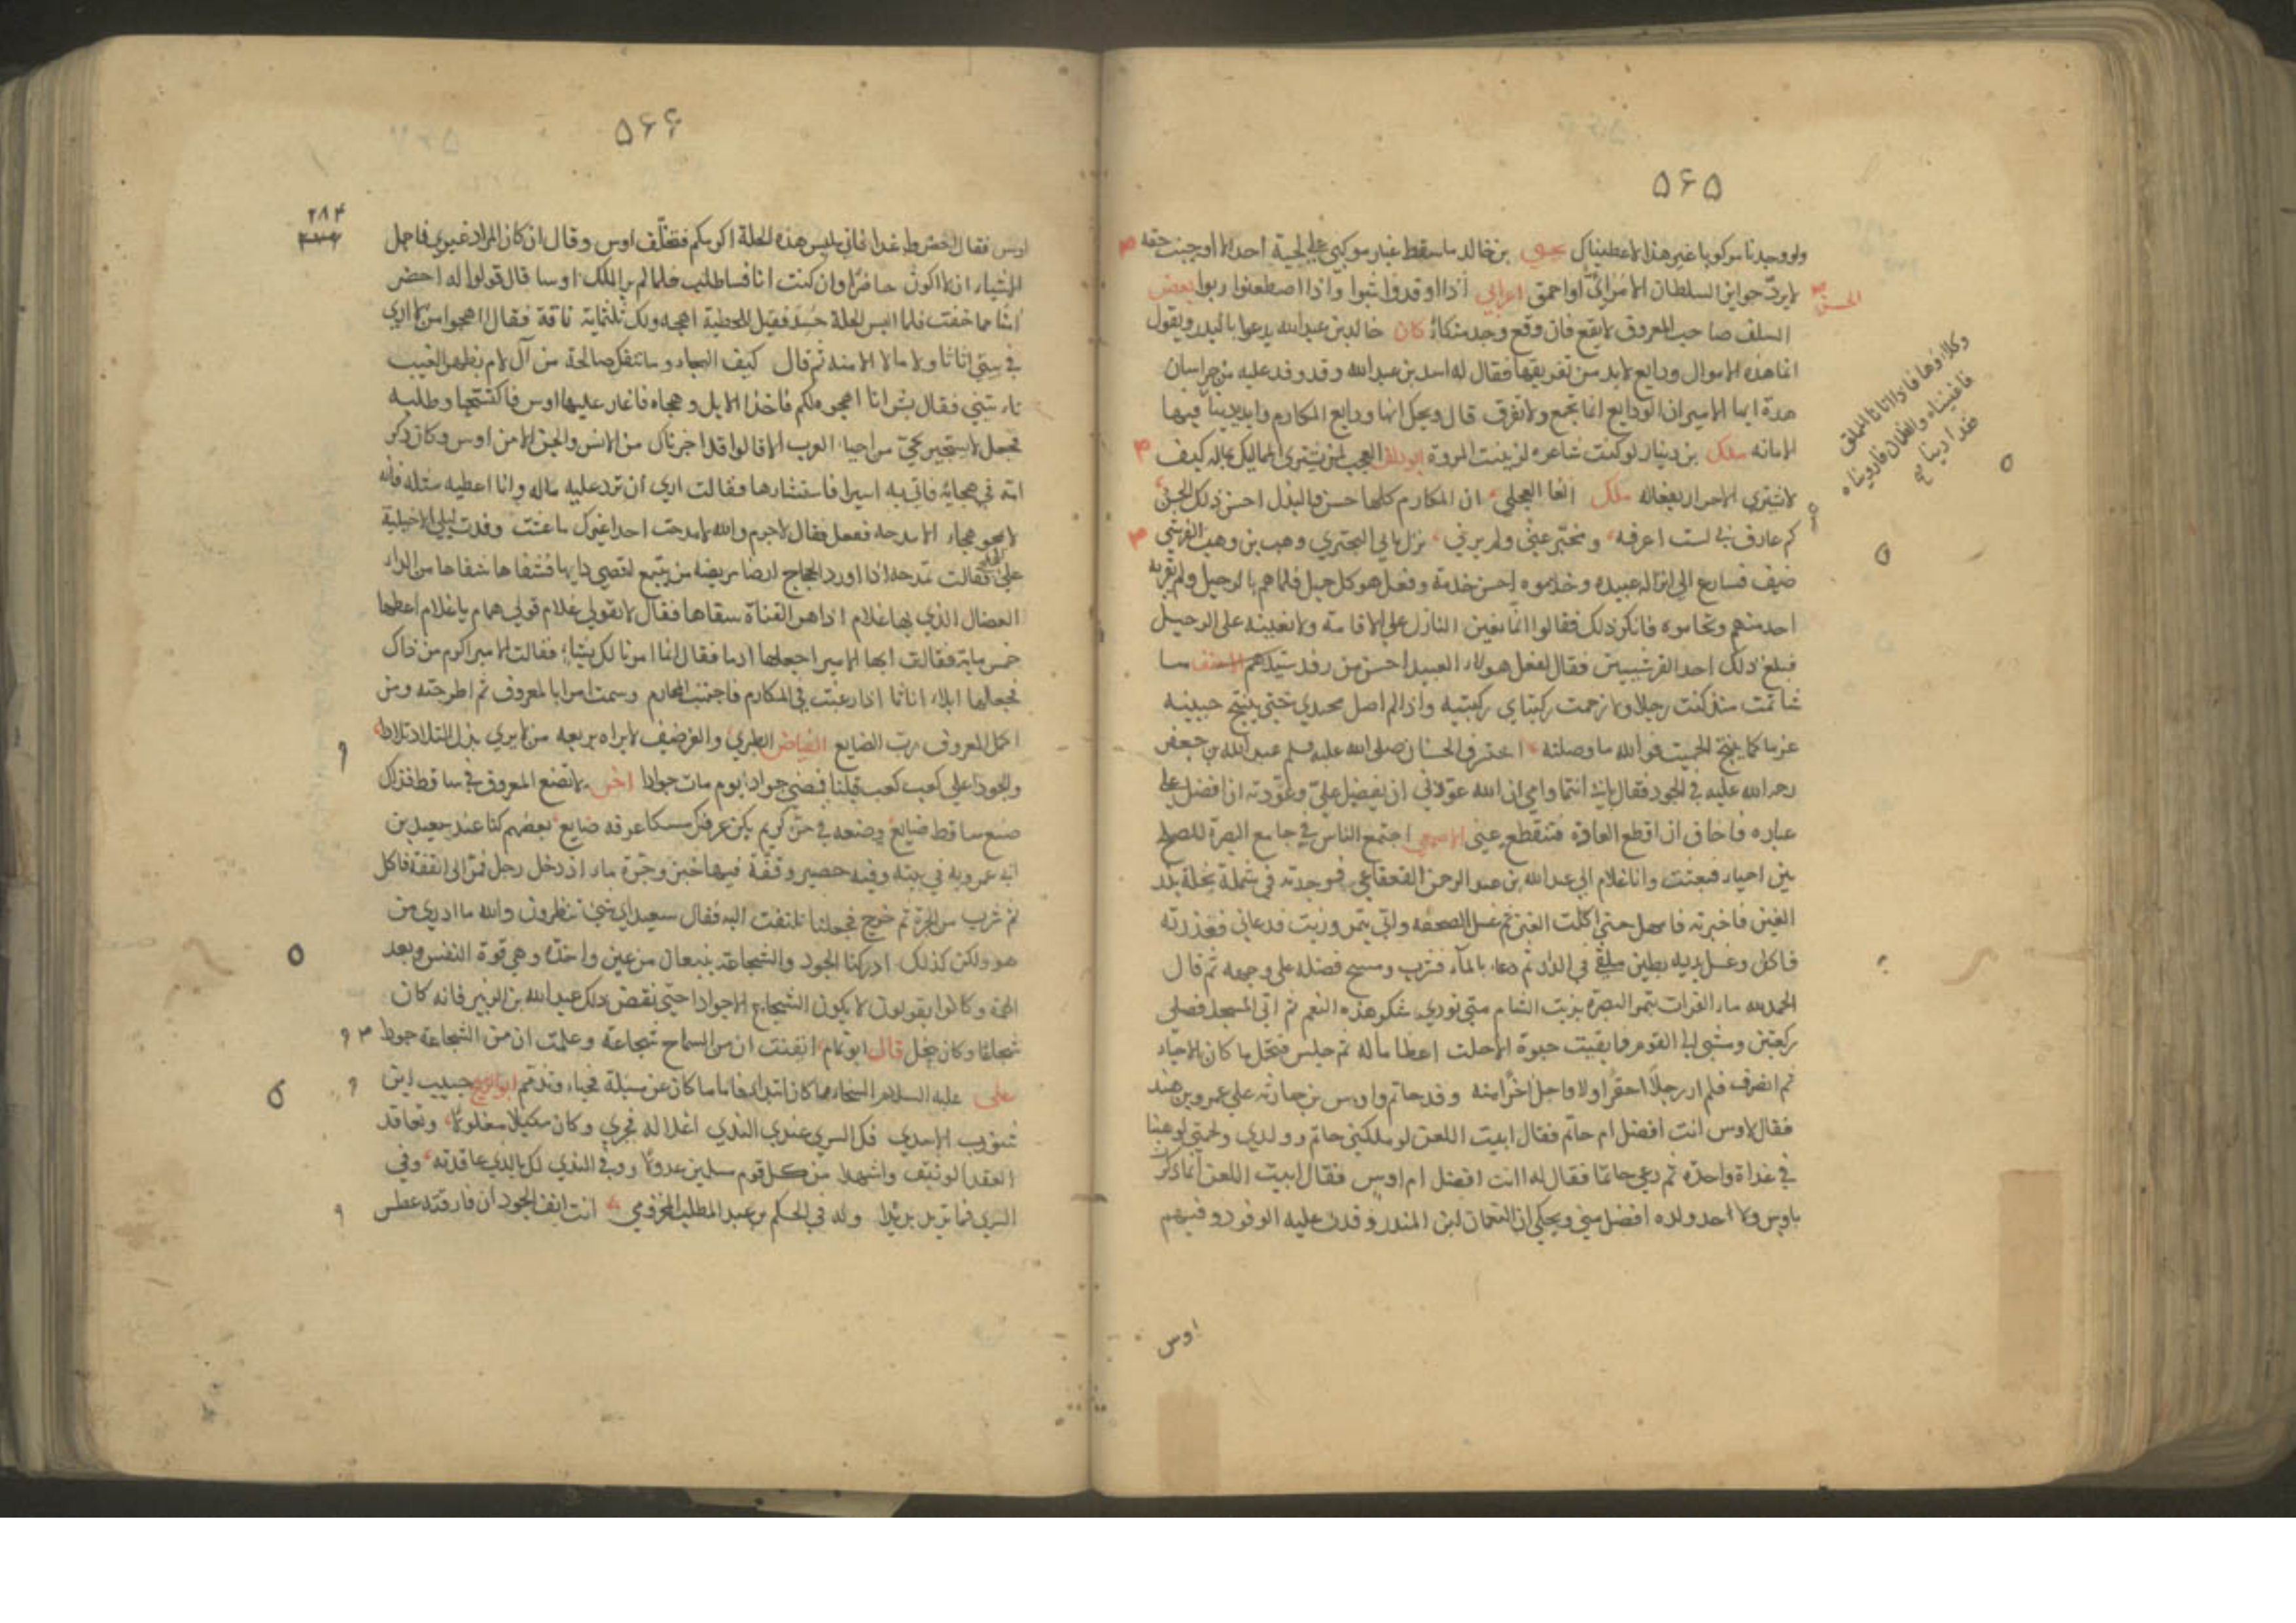 ٥۶٥
ولو وجدنا مركوبا غير هذا لاعطيناك يحيى بن خالد ما سقط غبار موكبي على لحية احد الا اوجبت حقه
لا يرد جوايز السلطان الا مرائي او احمق اعرابي اذا اوقدوا اثقبوا واذا اصطنعوا ربوا بعض
السلف صاحب المعروف لا يقع فان وقع وجد متكاء كان خالد بن عبد الله يدعوا بالبدر ويقول
انما هذه الاموال ودايع لا بد من تفريقها فقال له اسد بن عبد الله وقد وفد عليه من خراسان
هدة ايها الامير ان الودايع انما تجمع ولا تفرق قال ويحك انها ودايع المكارم وايدينا فيها
الامانه ملك بن دينار لو كنت شاعرا لرثيت المروة ابو دلف العجب لمن يشتري المماليك بماله كيف
لا يشتري الاحرار بفعاله ملك الغا العجلي ان المكارم كلها حسن والبذل احسن ذلك الحسن
كم عارف بي لست اعرفه ومخبر عني ولم يرني نزل بابي البختري وهب بن وهب القرشي
ضيف فسارع الى انزاله عبيده وخدموه احسن خدمة وفعل هو كل جميل فلما هم بالرحيل ولم يقربه
احد منهم وتحاموه فانكر ذلك فقالوا انما نعين النازل على الاقامة ولا نعينه على الرحيل
فبلغ ذلك احد القرشيين فقال لفعل هولاء العبيد احسن من رفد سيدهم الاحنف ما
شاتمت مذ كنت رجلا ولا زحمت ركبتاي ركبتيه واذا لم اصل مجتدي حتى ينتح جبينه
عرقا كما ينتح الحميت فوالله ما وصلته احترف الحسنان صلى الله عليه وسلم عبد الله بن جعفر
رحمة الله عليه في الجود فقال بابي انتما وامي ان الله عودني ان يفضل علي وعودته ان افضل على
عباده فاخاف ان اقطع العادة فتنقطع عني الاصمعي اجتمع الناس في جامع البصرة للصلح
بين احياء فبعثت وانا غلام الى عبد الله بن عبد الرحمن القعقاعي فوجدته في شملة يخلط بذر
العين فاخبرته فامهل حتى اكلت العنز ثم غسل الصحفه واتي بتمر وزيت فدعاني فقذرته
فاكل وغسل يديه بطين ملقى في الدار ثم دعا بالمآء فشرب ومسح فضله على وجهه ثم قال
الحمد لله ماء الفرات بتمر البصرة بزيت الشام متى نودي شكر هذه النعم ثم اتى المسجد فصلى
ركعتين ومشى الى القوم فما بقيت حبوة الا حلت اعظاما له ثم جلس فتحمل ما كان الاحياء
ثم انصرف فلم ار رجلا احقر اولا ولا اجل آخرا منه وفد حاتم واوس بن حارثه على عمرو بن هند
فقال لاوس انت افضل ام حاتم فقال ابيت اللعن لو ملكني حاتم وولدي ولحمتي لوهبنا
في غداة واحدة ثم دعى حاتما فقال له انت افضل ام اوس فقال ابيت اللعن انما ذكرت
باوس ولا احد ولده افضل مني ويحكى ان النعمان بن المنذر وفدت عليه الوفود وفيهم
اوس
وكلاؤها فاذا اتانا المملق
فاغنيناه والظمآن فارويناه
٥۶۶
٢٨۴
اوس فقال احضروا غدا فاني ملبس هذه الحلة اكرمكم فتخلف اوس وقال ان كان المراد غيري فاجمل
الاشياء ان لا اكون حاضرا وان كنت انا فساطلب فلما لم ير الملك اوسا قال قولوا له احضر
آمنا مما خفت فلما البس الحلة حسد فقيل للحطيئة اهجه ولك ثلثماية ناقة فقال اهجوا من لا ارى
في بيتي اثاثا ولا مالا الا منه ثم قال كيف الهجاء وما تنفك صالحة من آل لام بظهر الغيب
تاتيني فقال بشر انا اهجوه لكم فاخذ الابل وهجاه فاغار عليها اوس فاكتسحها وطلبه
فجعل لا يستجير بحي من احياء العرب الا قالوا قد اجرناك من الانس والجن الا من اوس وكان ذكر
امه في هجائه فاتي به اسيرا فاستشارها فقالت ارى ان ترد عليه ماله وانا اعطيه مثله فانه
لا يمحو هجاءه الا مدحه ففعل فقال لا جرم والله لا مدحت احدا غيرك ما عشت وفدت ليلى الاخيلية
على الحجاج فقالت تمدحه اذا اورد الحجاج ارضا مريضه من يتبع اقصى دايها فشفاها شفاها من الداء
العضال الذي بها غلام اذا هز القناة سقاها فقال لا تقولي غلام قولي همام يا غلام اعطها
خمس مايه فقالت ايها الامير اجعلها ادما فقال انما امرنا لك بشاء فقالت الامير اكرم من ذاك
فجعلها ابلا اناثا اذا رغبت في المكارم فاجتنب المحارم وسمت امرا بالمعروف ثم اطرحته ومن
اكمل المعروف رب الصنايع الفياض الطبري والغر ضيف لا يراه بربعه من لا يرى بذل التلاد تلادا
والجود اعلى كعب كعب قبلنا فمضى جوادا يوم مات جوادا اخر لا تصنع المعروف في ساقط فذاك
صنع ساقط ضايع وضعه في حر كريم يكن عرفك مسكا عرفه ضايع بعضهم كنا عند سعيد بن
ابي عروبة في بيته وفيه حصير وقفة فيها خبز وجرة ماء اذ دخل رجل فمر الى القفة فاكل
ثم شرب من الجرة ثم خرج فجعلنا نلتفت اليه فقال سعيد اي شي تنظرون والله ما ادري من
هو ولكن كذلك ادركنا الجود والشجاعة ينبعان من عين واحدة وهي قوة النفس وبعد
الهمة وكانوا يقولون لا يكون الشجاع الا جوادا حتى نقض ذلك عبد الله بن الزبير فانه كان
شجاعا وكان يبخل قال ابو تمام ايقنت ان من السماح شجاعة وعلمت ان من الشجاعة جودا
على عليه السلام السخاء ما كان ابتداء فاما ما كان عن مسئلة فحياء وتذمم ابو الربيع حبيب ابن
شوذب الاسدي فك السري عندي الندى اغلاله فجرى وكان مكبلا مغلولا وتعاقد
العقد الوثيف واشهدا من كل قوم مسلمين عدولا ووفى الندى لك بالذي عاقدته وفي
السري فما تريد بديلا وله في الحكم بن عبد المطلب المخزومي انت انف الجود ان فارقته عطس